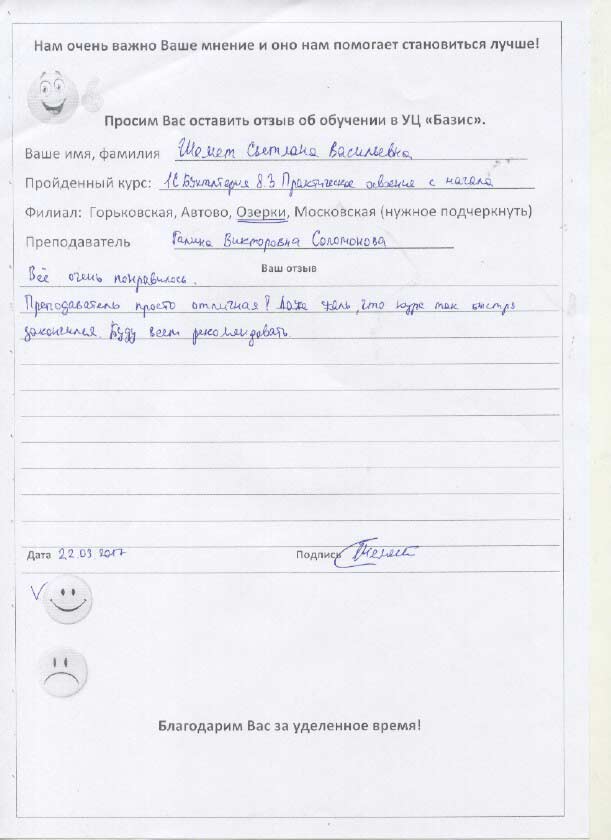 Нам очень важно Ваше мнение и оно нам помогает становиться лучше!
Просим Вас оставить отзыв об обучении в УЦ «Базис».
Ваше имя, фамилия Шемет Светлана Васильевна
Пройденный курс: 1С Бухгалтерия 8.3 Практическое освоение с начала
Филиал: Горьковская, Автово, Озерки, Московская (нужное подчеркнуть)
Преподаватель Галина Викторовна Соломонова
Ваш отзыв
Всё очень понравилось.
Преподаватель просто отличная! Даже жаль, что курс так быстро
закончился. Буду всем рекомендовать.
Дата 22.03 2017
Подпись Шемет
V
Благодарим Вас за уделенное время!